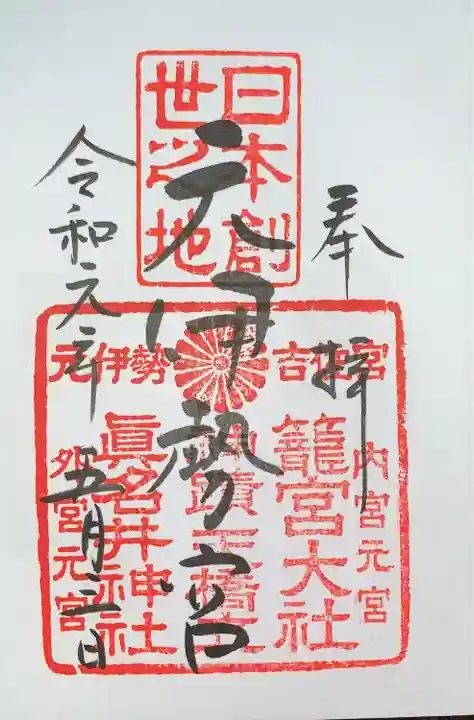 奉拝
日本創
世之地
元伊勢宮
令和元年五月二日
元伊勢
吉佐宮
内宮元宮
籠宮大社
眞名井神社
外宮元宮